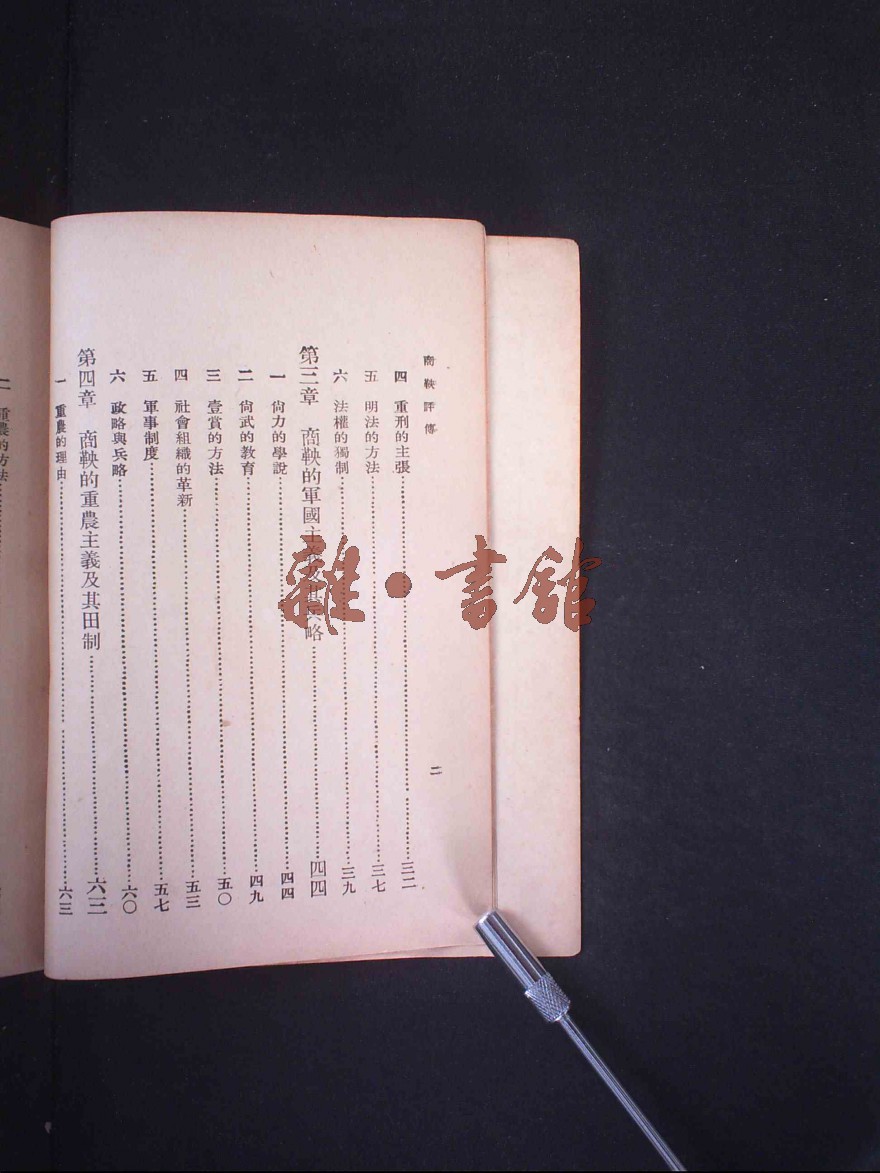 商鞅評傳
二
四 重刑的主張……三二
五 明法的方法……三七
六 法權的獨制……三九
第三章 商鞅的軍國主義及其兵略……四四
一 尙力的學說……四四
二 尙武的教育……四九
三 壹賞的方法……五〇
四 社會組織的革新……五三
五 軍事制度……五七
六 政略與兵略……六〇
第四章 商鞅的重農主義及其田制……六三
一 重農的理由……六三
二 重農的方法……
雜·書館